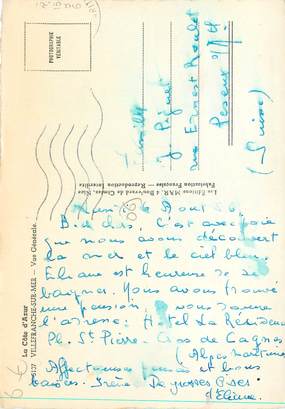 PHOTOGRAPHIE
VÉRITABLE
Famille
J. Piguet
rue Ernest Roulet
Peseux
(Suisse)
Les Editions MAR, 4 Boulevard de Cimiez, Nice
Fabrication Française - Reproduction Interdite
La Côte d'Azur
VILLEFRANCHE-SUR-MER — Vue Générale.
Août
B. chers. C'est avec joie
que nous avons découvert
la mer et le ciel bleu.
Eliane est heureuse de se
baigner. Nous avons trouvé
une pension, vous donne
l'adresse: Hotel La Résidence
Pl. St Pierre - Cros de Cagnes
(Alpes maritimes)
Affectueuses pensées et bons
baisers. Irène De grosses bises
d'Eliane.